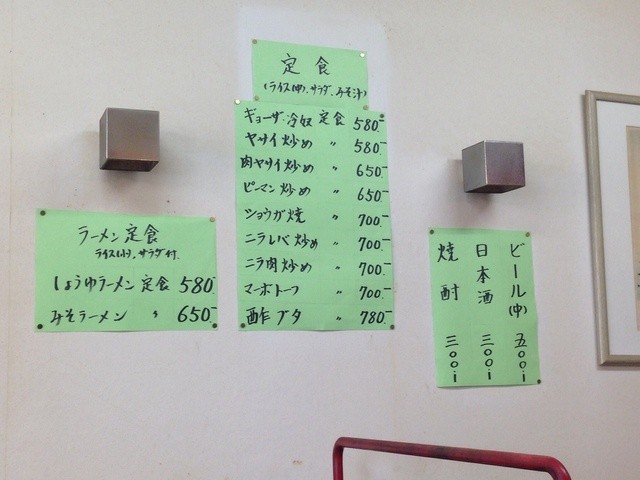 定食
(ライス(中)、サラダ、みそ汁)
ギョーザ・冷奴 定食 580.-
ヤサイ炒め 〃 580.-
肉ヤサイ炒め 〃 650.-
ピーマン炒め 〃 650.-
ショウガ焼 〃 700.-
ニラレバ炒め 〃 700.-
ニラ肉炒め 〃 700.-
マーボトーフ 〃 700.-
酢ブタ 〃 780.-
ラーメン定食
ライス(小)、サラダ付.
しょうゆラーメン 定食 580.-
みそラーメン 〃 650.-
ビール(中) 五〇〇.-
日本酒 三〇〇.-
焼酎 三〇〇.-